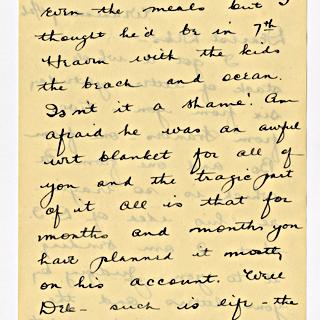 even the meals but I
thought he'd be in 7th
Heaven with the kids
the beach and ocean.
Isn't it a shame! Am
afraid he was an awful
wet blanket for all of
you and the tragic part
of it all is that for
months and months you
have planned it mostly
on his account. Well
Dek - such is life - the